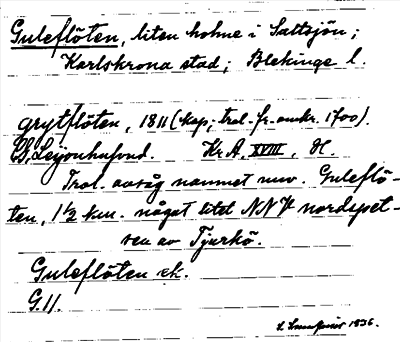 Guleflöten, liten holme i Saltsjön;
Karlskrona stad; Blekinge l.
grytflöten, 1811 (kop; trol. fr. omkr. 1700).
Leijonhufvud. Kr. A, XVIII,
Trol. avsåg namnet nuv. Guleflö-
ten, 1½ km. något litet NNV nordspet-
sen av Tjurkö.
Guleflöten ek.
G. 11.
1936.